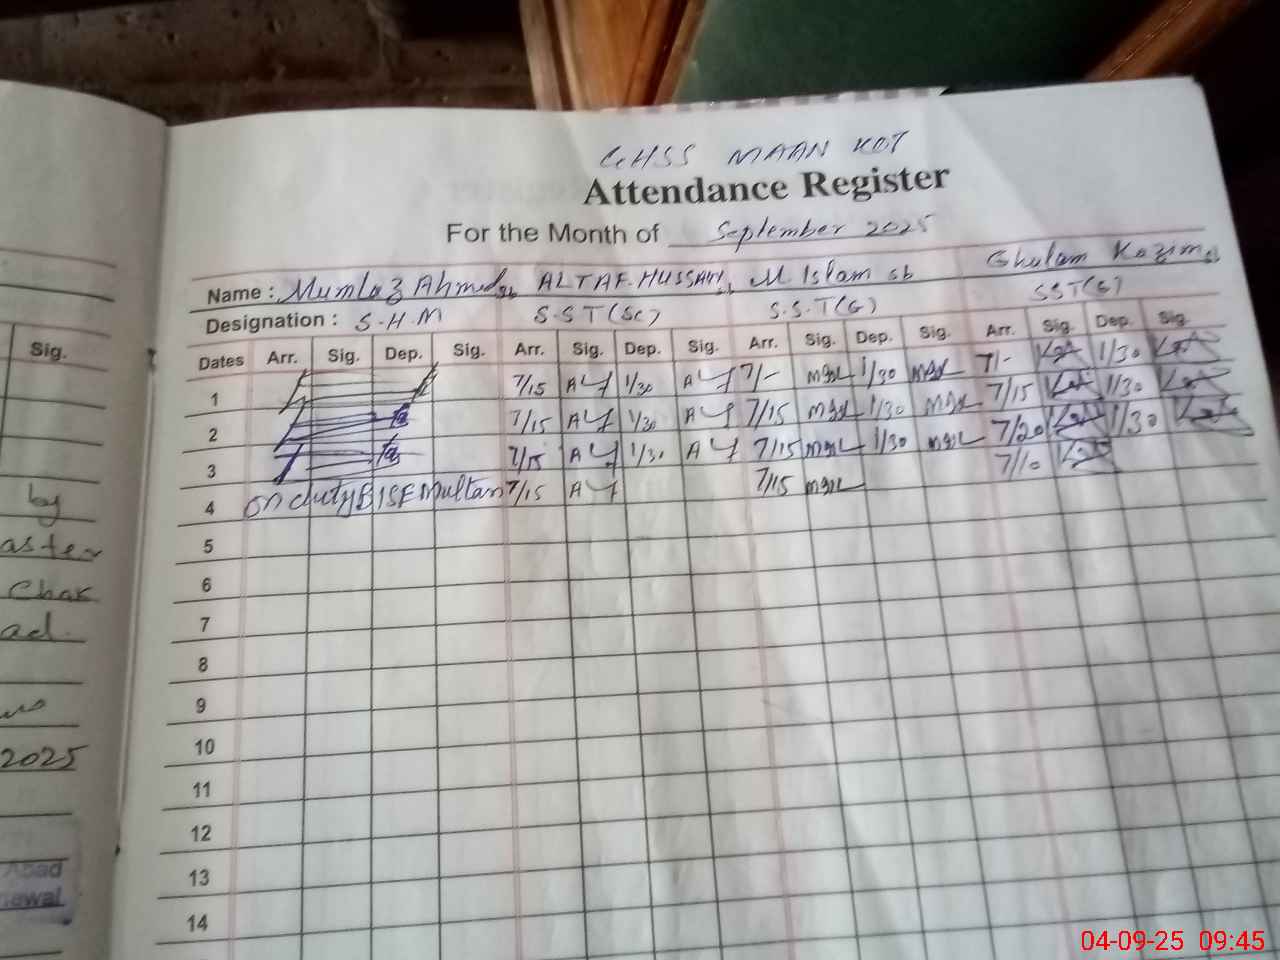 GHSS MAAN KOT
Attendance Register
For the Month of September 2025
Name : Mumtaz Ahmed sb ALTAF HUSSAIN sb M Islam sb Ghulam Kazim sb
Designation : S.H.M S.S.T(Sc) S.S.T(G) SST(G)
Dates Arr. Sig. Dep. Sig. Arr. Sig. Dep. Sig. Arr. Sig. Dep. Sig. Arr. Sig. Dep. Sig.
1 7/15 1/30 7/- 1/30 7/- 1/30
2 7/15 1/30 7/15 1/30 7/15 1/30
3 7/15 1/30 7/15 1/30 7/20 1/30
4 on duty BISE Multan 7/15 7/15 7/10
5
6
7
8
9
10
11
12
13
14
Sig.
by
Chak
2025
Abad
04-09-25 09:45